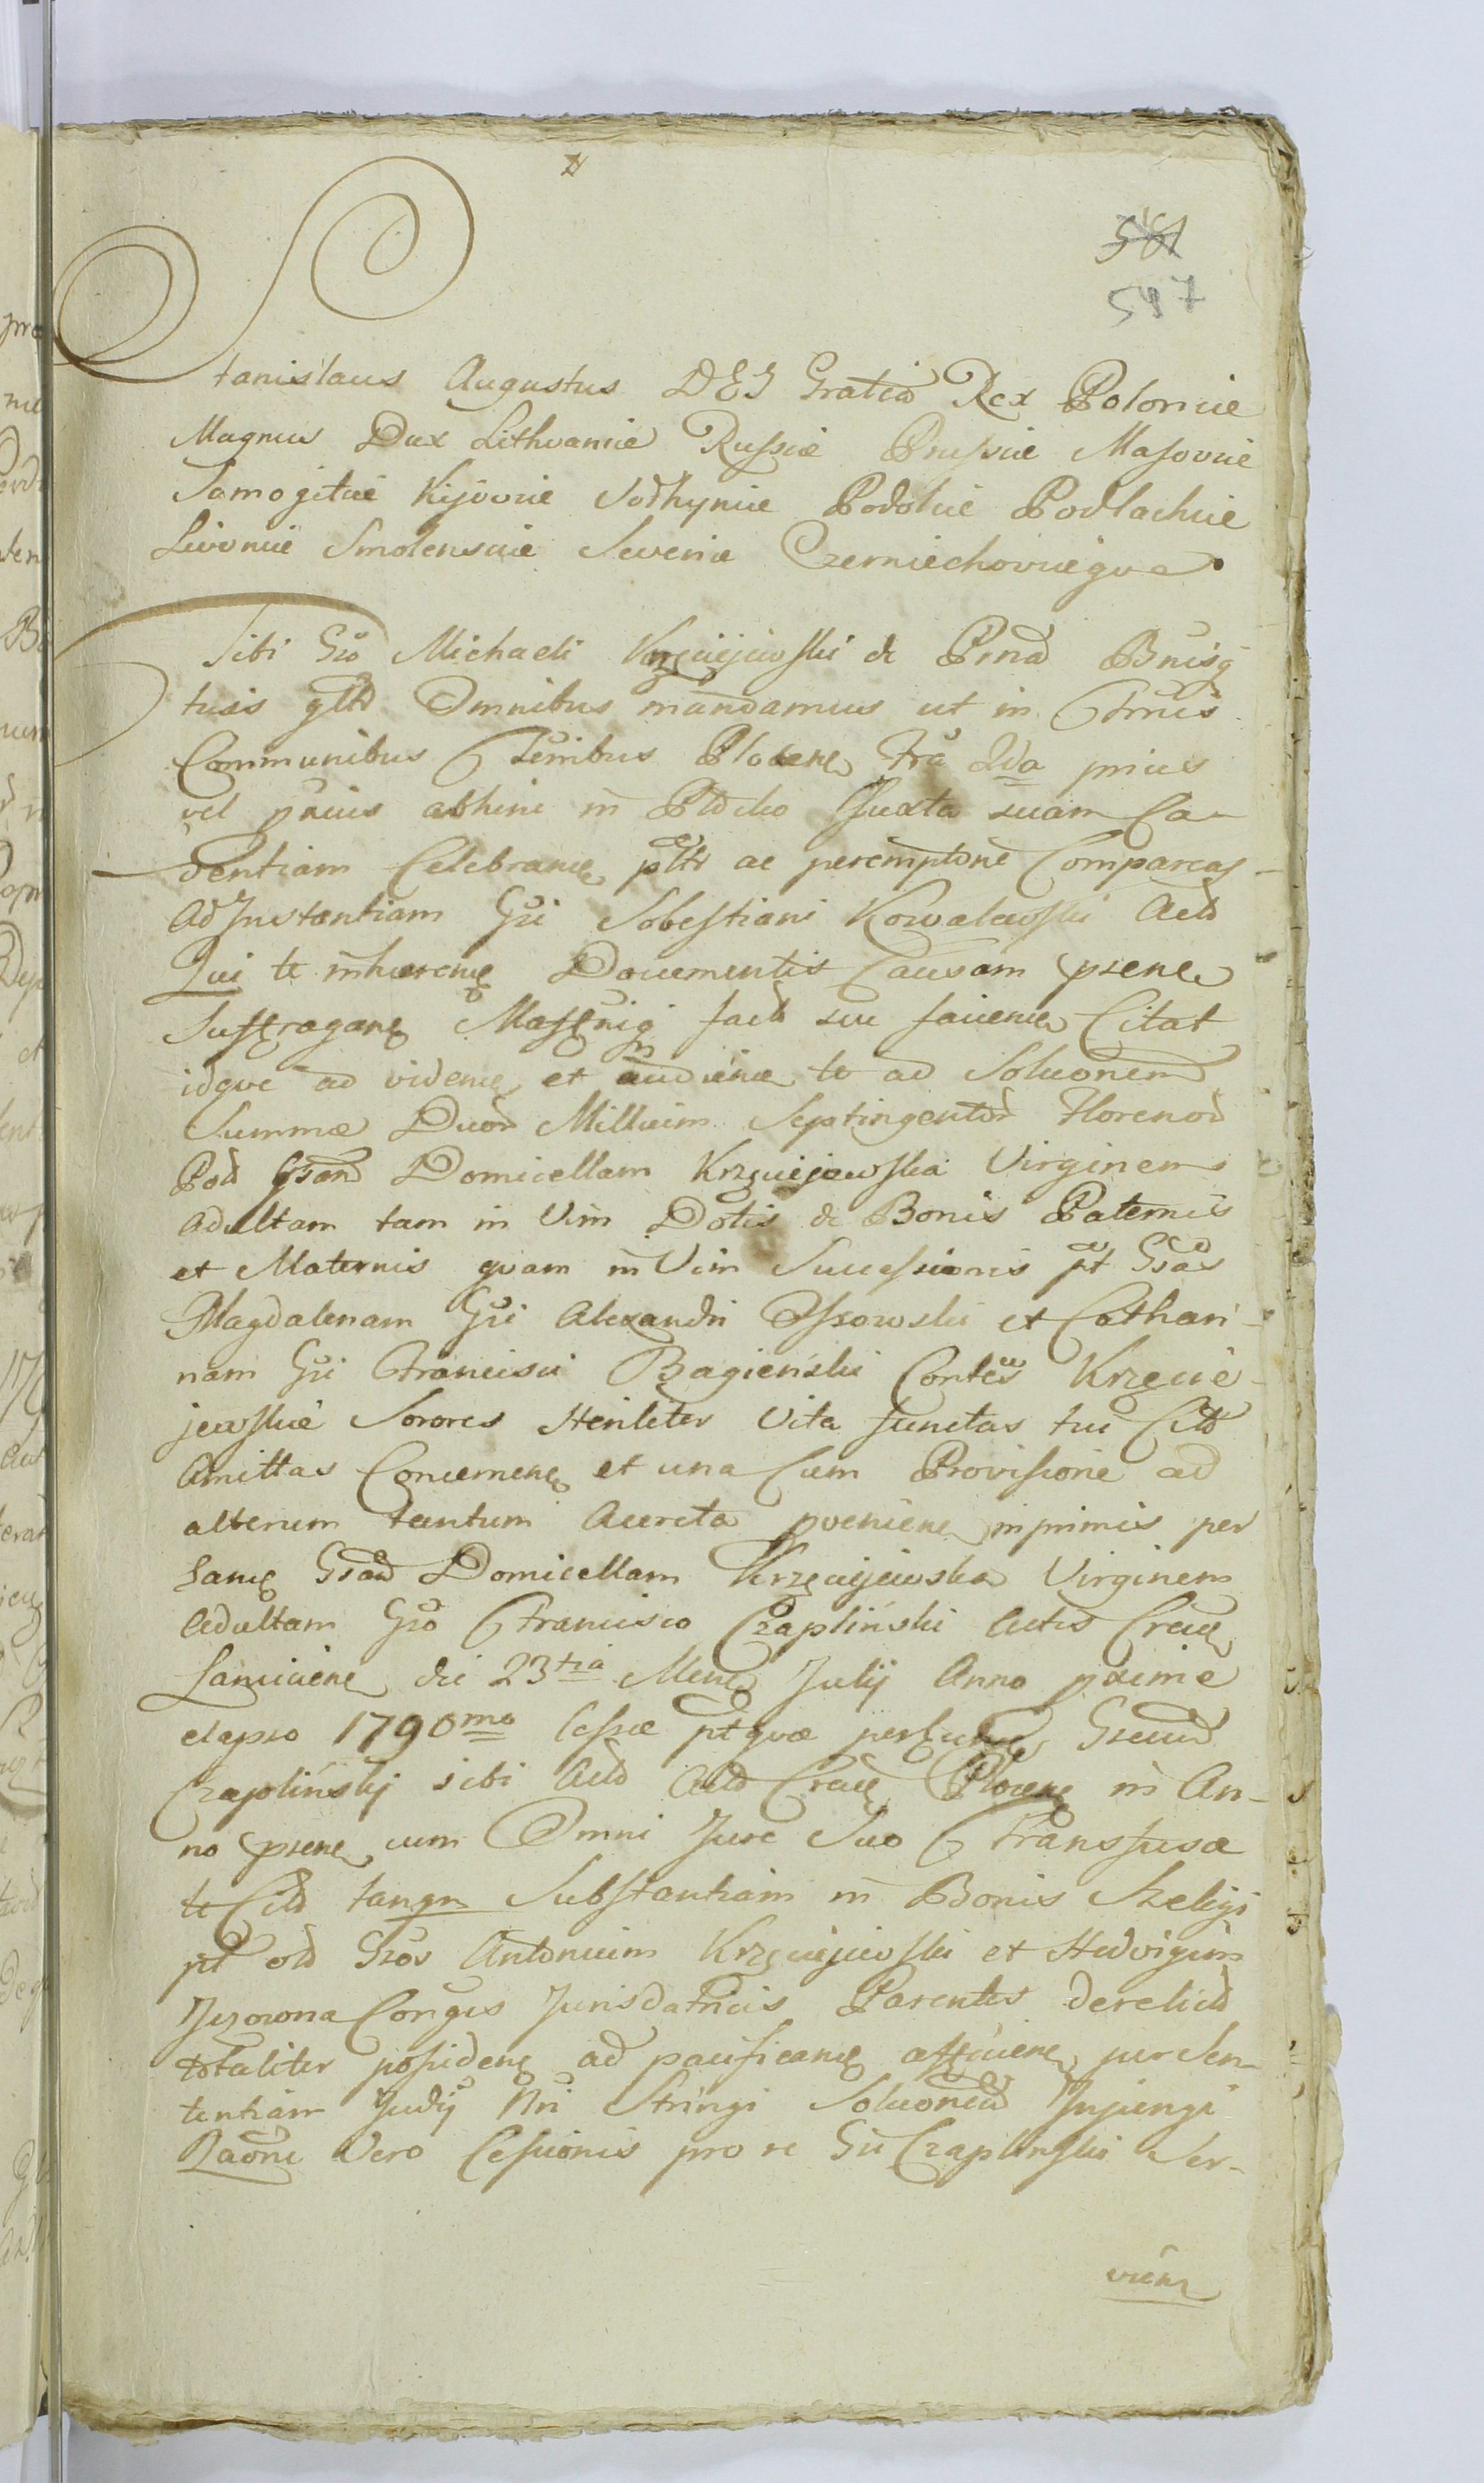 561
597
Stanislaus Augustus DEI Gratia Rex Poloniæ
Magnus Dux Lithvaniæ Russiæ Prussiæ Masoviæ
Samogitiæ Kijoviæ Volhyniæ Podoliæ Podlachiæ
Livoniæ Smolensciæ Severiæ Czerniechoviæqve.
Tibi Gso Michaeli Krzęciejewski de Prna Bnisq
tuis gltr Omnibus mandamus ut in
Communibus Plocens Fra 2da prius
vel abhinc in Płocko Juxta suam Ca-
dentiam Celebrand pltr ac peremptorie Compareas
Ad Instantiam Gsi Sebestiani Kowalewski Acto
Qui te inhærens Documentis Causam psene
Suffragane facto seu faciend Citat
idqve ad videnc et audienc te ad Soluonem
Summæ Duor Millium Septingentor Florenor
Pol Gsam Domicellam Krzęciejewska Virginem
adultam tam in Vim Dotis de Bonis Paternis
et Maternis qvam in Vim Successionis pt Gsas
Magdalenam Gsi Alexandri Ossowski et Cathari-
nam Gsi Francisci Bagieński Contes Krzęcie-
jewskie Sorores Steriliter Vita functas tui Cito
Amittas Concernen et una Cum Provisione ad
alterum tantum Accreta pvenien inprimis per
eanq Gsam Domicellam Krzęciejewska Virginem
Adultam Gso Francisco Czapliński Actis
die 23tia Mens Julij Anno pxime
elapso 1790mo Cessæ ptqvæ Gseum
Czaplińskj sibi Acto Acto Plocens in An-
no psene cum Omni Jure Suo Transfusæ
te Cito tangn Substantiam in Bonis Szeligi
pt olo Gsos Antonium Krzęciejewski et Hedvigim
Jezowna Conges Jurisdatricis Parentes derelict
totaliter possidens ad pacificand per Sen-
tentiam Judij Nri Stringi Soluonem Injungi
Raone Vero Cessionis pro re Gsi Czaplinski Ser-
viens